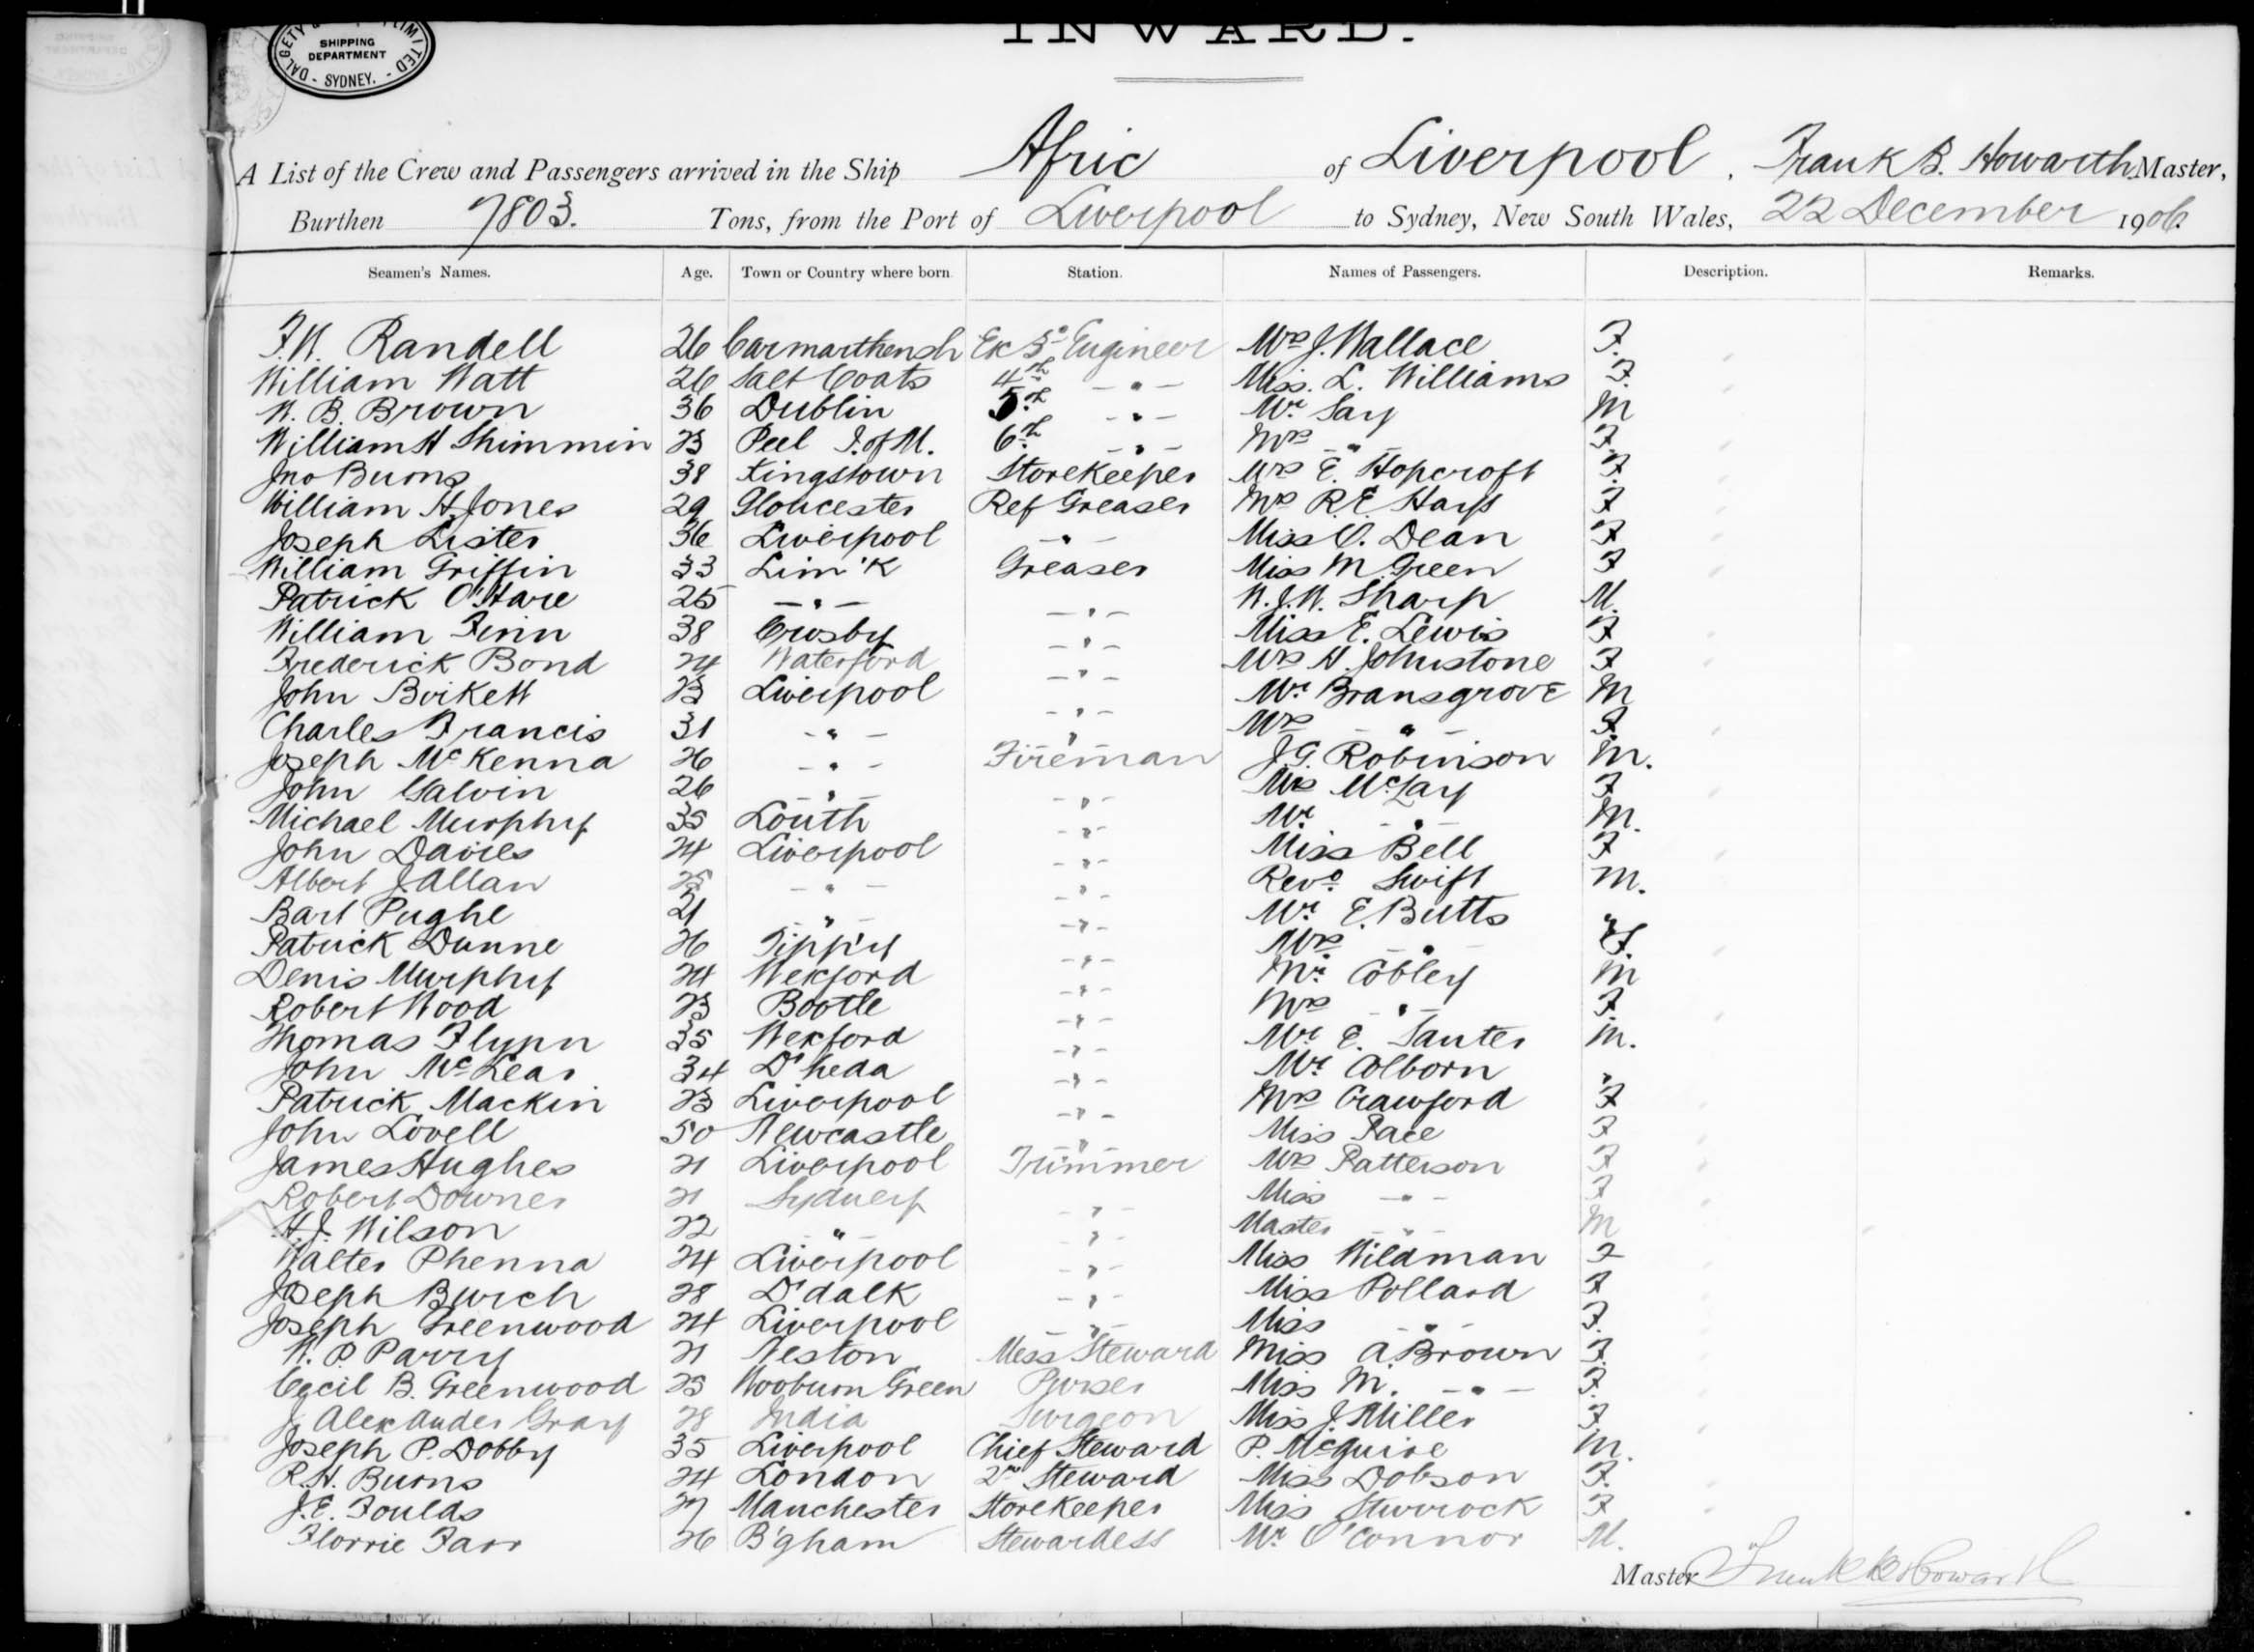 INWARD.
DALGETY LIMITED
SHIPPING
DEPARTMENT
- SYDNEY. -
A List of the Crew and Passengers arrived in the Ship Afric of Liverpool, Frank B. Howarth Master,
Burthen 7803. Tons, from the Port of Liverpool to Sydney, New South Wales, 22 December 1906.
Seamen's Names. Age. Town or Country where born. Station. Names of Passengers. Description. Remarks.
F.W. Randell 26 Carmarthensh Ex 3rd Engineer Mrs J. Wallace F.
William Watt 26 Salt Coats 4th - " - Miss. L. Williams F.
W. B. Brown 36 Dublin 5th - " - Mr Say M
William H Shimmin 23 Peel I. of M. 6th - " - Mrs - " - F.
Jno Burns 38 Kingstown Storekeeper Mrs E. Hopcroft F.
William H. Jones 29 Gloucester Ref Greaser Mrs R.E. Hays F
Joseph Lister 36 Liverpool - " - Miss O. Dean F
William Griffin 33 Lim'k Greaser Miss M. Green F
Patrick O'Hare 25 - " - - " - W.J.W. Sharp M.
William Finn 38 Crosby - " - Miss E. Lewis F
Frederick Bond 24 Waterford - " - Mrs H. Johnstone F
John Birkett 23 Liverpool - " - Mr Bransgrove M
Charles Francis 31 - " - - " - Mrs " F.
Joseph McKenna 26 - " - Fireman J.G. Robinson M.
John Galvin 26 - " - - " - Mrs McLay F
Michael Murphy 35 Louth - " - Mr - " - M.
John Davies 24 Liverpool - " - Miss Bell F
Albert J. Allan 25 - " - - " - Revd Swift M.
Bart Pughe 21 - " - - " - Mr E. Butts "
Patrick Dunne 26 Tipp'y - " - Mrs - " - F.
Denis Murphy 24 Wexford - " - Mr Cobley M
Robert Wood 23 Bootle - " - Mrs - " - F.
Thomas Flynn 35 Wexford - " - Mr E. Sauter M.
John McLear 34 D'heda - " - Mr Colborn "
Patrick Mackin 23 Liverpool - " - Mrs Crawford F
John Lovell 50 Newcastle - " - Miss Pace F
James Hughes 21 Liverpool Trimmer Mrs Patterson F
Robert Downer 21 Sydney - " - Miss - " - F
H.J. Wilson 22 " - " - Master - " - M
Walter Phenna 24 Liverpool - " - Miss Wildman F
Joseph Burch 28 D'dalk - " - Miss Pollard F
Joseph Greenwood 24 Liverpool - " - Miss - " - F.
W. P. Parry 21 Neston Mess Steward Miss A Brown F.
Cecil B. Greenwood 25 Wooburn Green Purser Miss M. - " - F.
J. Alexander Gray 28 India Surgeon Miss J. Miller F.
Joseph P. Dobby 35 Liverpool Chief Steward P. McGuire M.
R.H. Burns 24 London 2nd Steward Miss Dobson F.
J.E. Foulds 27 Manchester Storekeeper Miss Sturrock F
Florrie Farr 26 B'gham Stewardess Mr O'Connor M.
Master Frank B Howarth